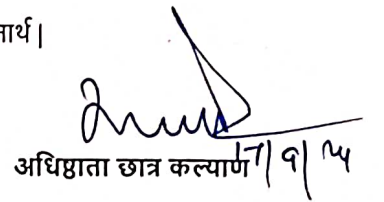 नार्थ।
अधिष्ठाता छात्र कल्याण 17/9/24